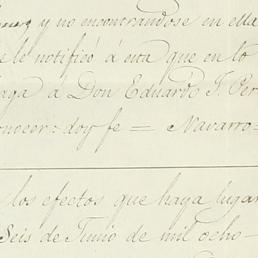 y no encontrandose en ella
se le notificó á esta que en lo
haga á Don Eduardo J. Per
onocer: doy fe = Navarro =
los efectos que haya lugar
Seis de Junio de mil ocho-